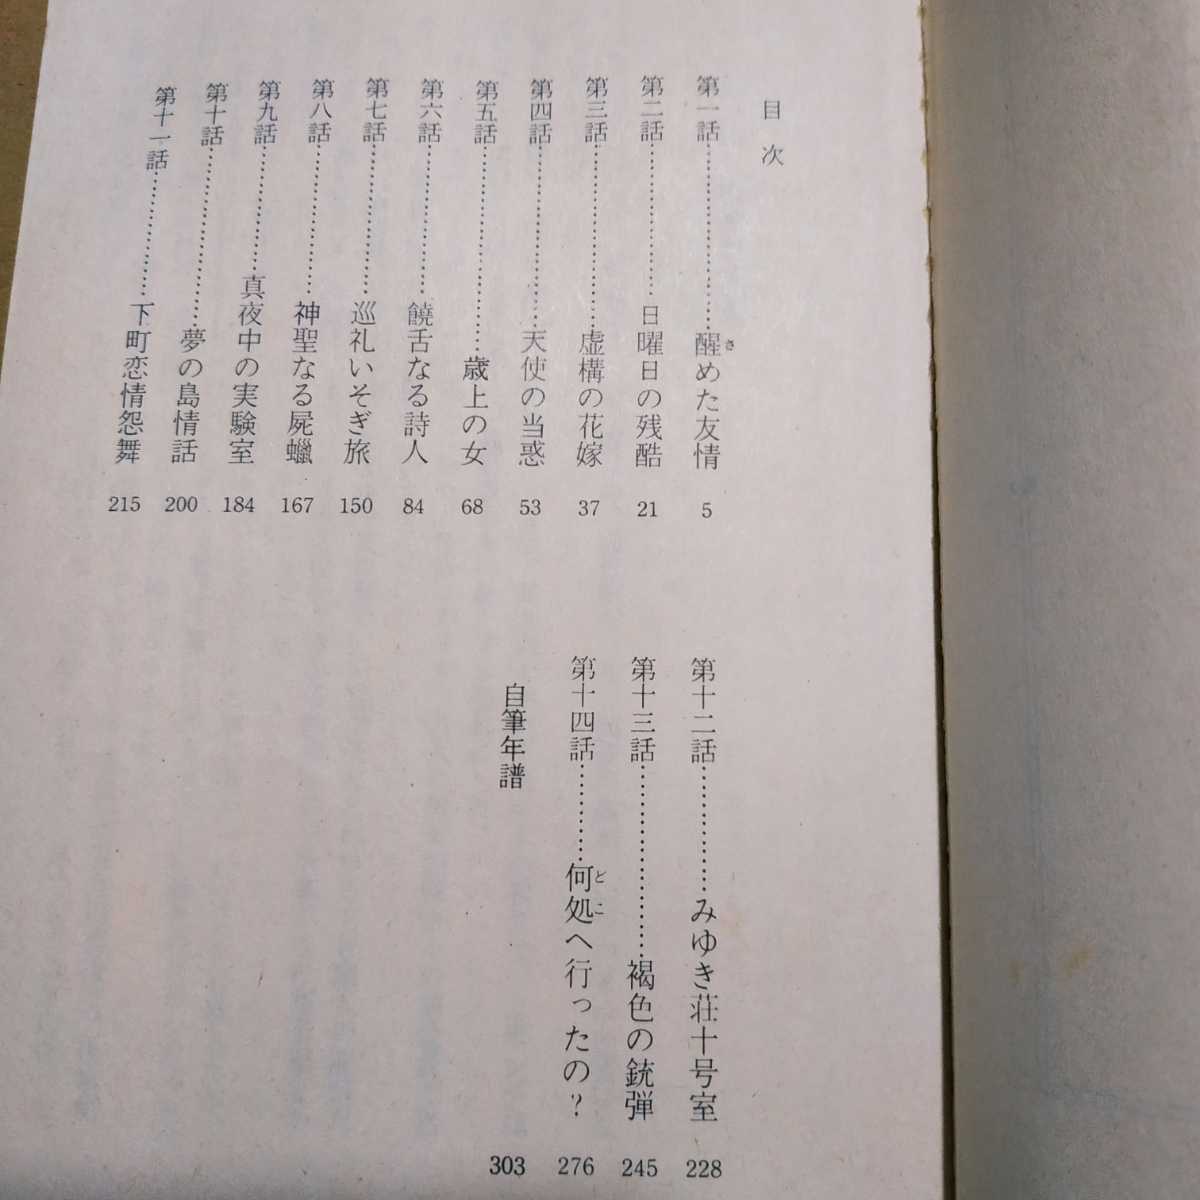 目次
第一話……………………醒めた友情 5
さ
第二話……………………日曜日の残酷 21
第三話……………………虚構の花嫁 37
第四話……………………天使の当惑 53
第五話……………………歳上の女 68
第六話……………………饒舌なる詩人 84
第七話……………………巡礼いそぎ旅 150
第八話……………………神聖なる屍蠟 167
第九話……………………真夜中の実験室 184
第十話……………………夢の島情話 200
第十一話……………………下町恋情怨舞 215
第十二話……………………みゆき荘十号室 228
第十三話……………………褐色の銃弾 245
第十四話……………………何処へ行ったの? 276
どこ
自筆年譜 303